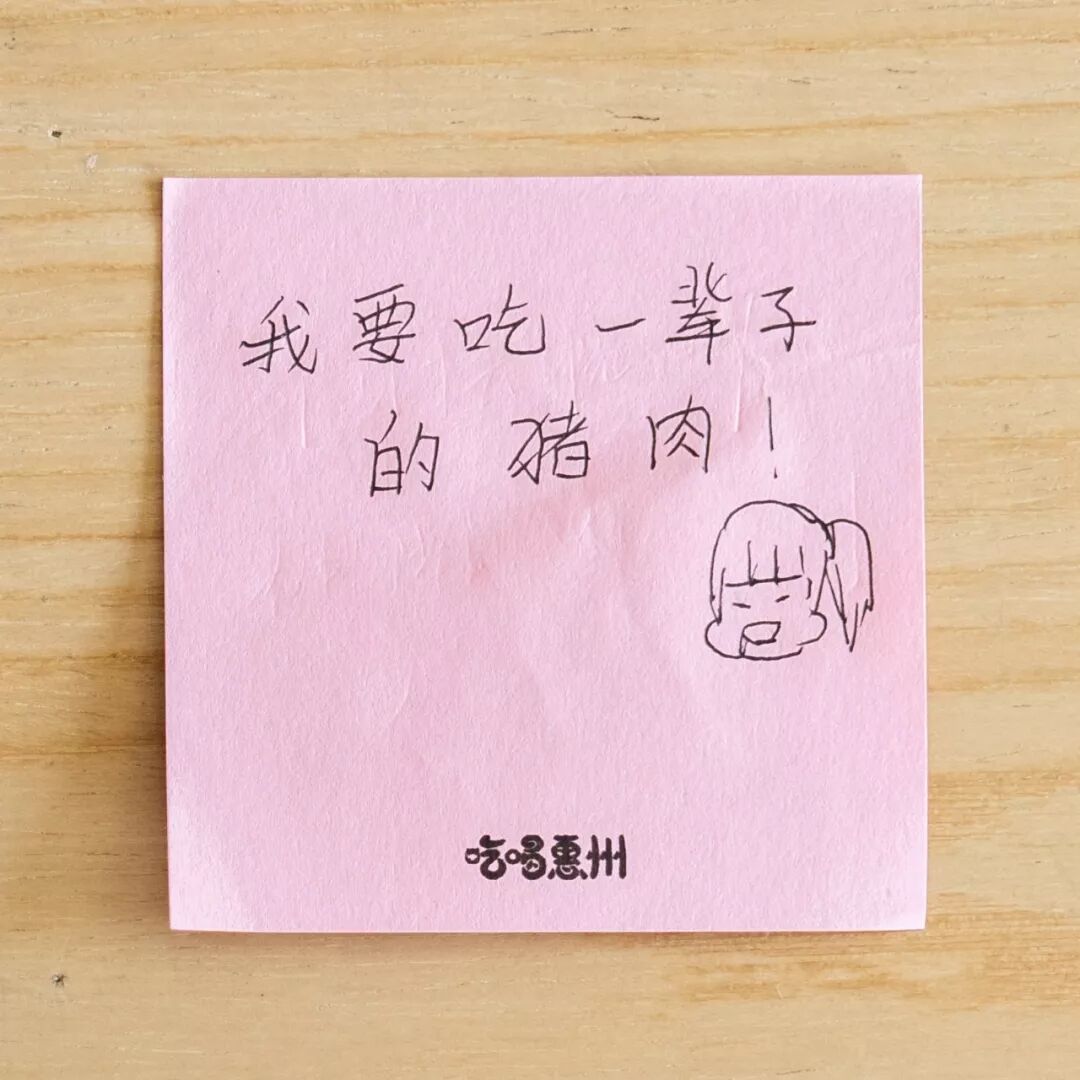 我要吃一辈子
的猪肉!
吃喝惠州